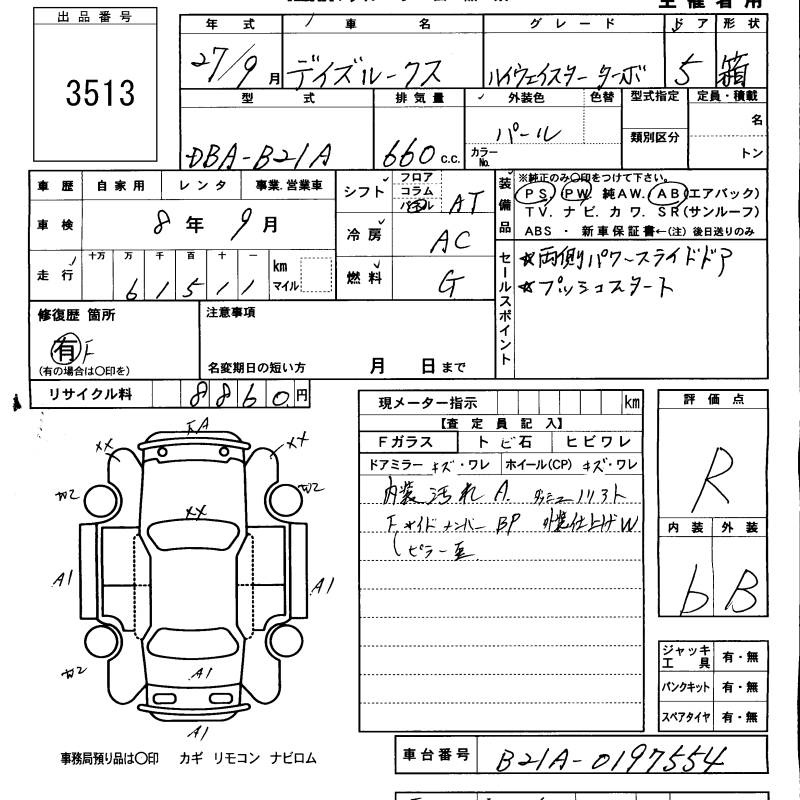 出品番号
3513
年 式 車 名 グレード ドア 形状
27/9月 デイズルークス ハイウェイスター ターボ 5 箱
型 式 排気量 外装色 色替 型式指定 定員・積載
DBA-B21A 660 c.c. パール 名
カラーNo. 類別区分 トン
車歴 自家用 レンタ 事業.営業車
車検 8年 9月
走行 十万 万 千 百 十 一 km マイル
6 1 5 1 1
シフト フロア コラム AT
冷房 AC
燃料 G
装備品 ※純正のみ〇印をつけて下さい。
PS PW 純AW. AB(エアバック)
TV. ナビ. カワ. SR(サンルーフ)
ABS ・ 新車保証書←(注) 後日送りのみ
セールスポイント
☆両側パワースライドドア
☆プッシュスタート
修復歴 箇所
有 F
(有の場合は〇印を)
注意事項
名変期日の短い方 月 日まで
リサイクル料 8860円
現メーター指示 km
【査定員記入】
Fガラス トビ石 ヒビワレ
ドアミラー キズ・ワレ ホイール(CP) キズ・ワレ
内装汚れ A.
F サイドメンバー BP 外装仕上げW
ピラー
評価点
R
内装 外装
b B
XX XX
W2 W2
XX
A1 A1
W2 W2
A1
A1
ジャッキ工具 有・無
パンクキット 有・無
スペアタイヤ 有・無
事務局預り品は〇印 カギ リモコン ナビロム
車台番号 B21A-0197554